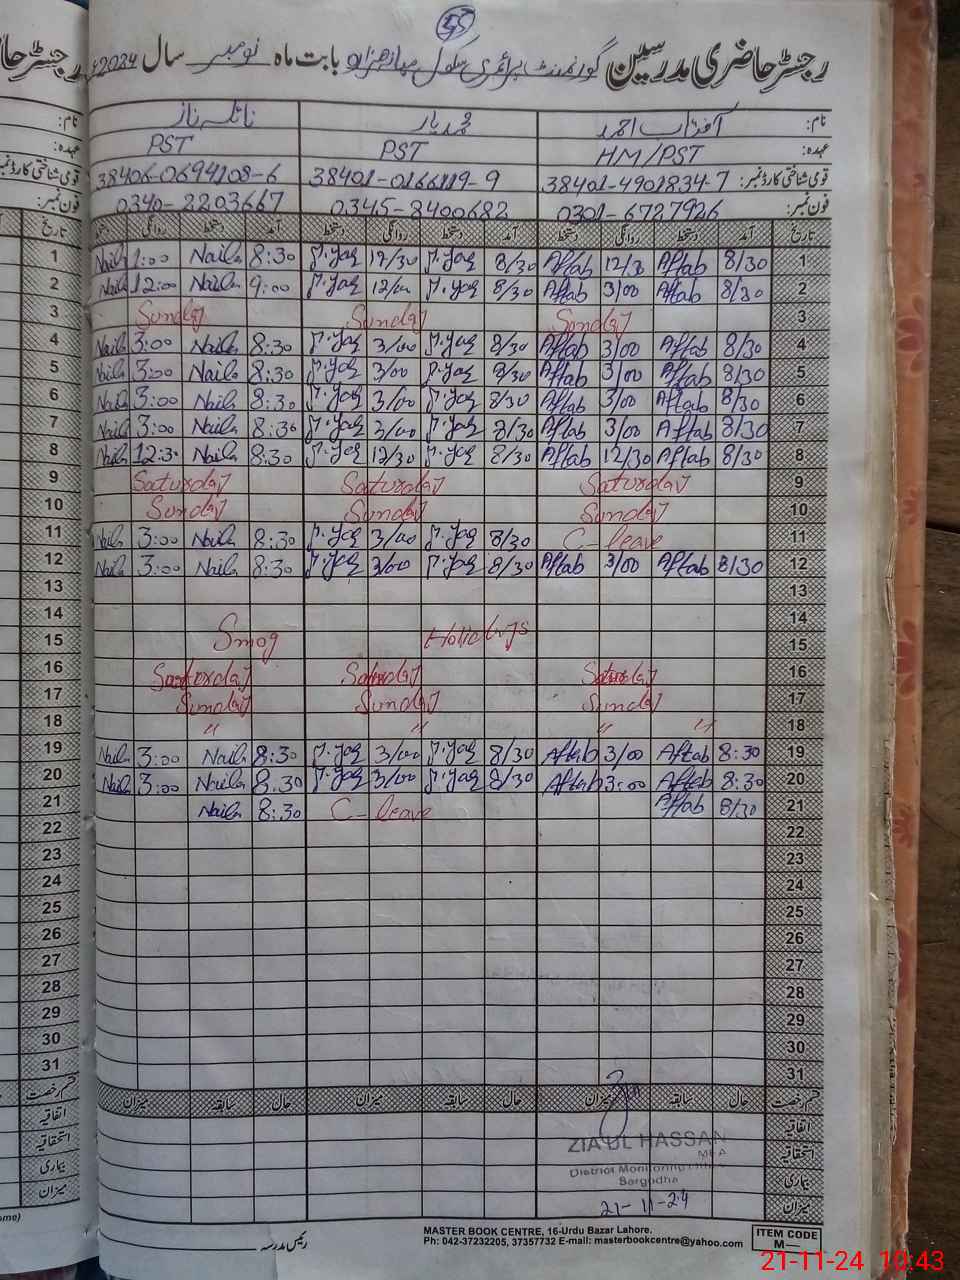 55
رجسٹر حاضری مدرسین گورنمنٹ پرائمری سکول بابت ماہ نومبر سال 2024ء
نام: آفتاب احمد محمد یار نائلہ ناز
عہدہ: HM/PST PST PST
قومی شناختی کارڈ نمبر: 38401-4901834-7 38401-0166119-9 38406-0694108-6
فون نمبر: 0301-6727926 0345-8400682 0340-2203667
تاریخ آمد دستخط روانگی دستخط آمد دستخط روانگی دستخط آمد دستخط روانگی دستخط تاریخ
1 Naila 1:00 Naila 8:30 M.Yar 12/30 M.Yar 8/30 Aftab 12/30 Aftab 8/30 1
2 Naila 12:00 Naila 9:00 M.Yar 12/00 M.Yar 8/30 Aftab 3/00 Aftab 8/30 2
3 Sunday Sunday Sunday 3
4 Naila 3:00 Naila 8:30 M.Yar 3/00 M.Yar 8/30 Aftab 3/00 Aftab 8/30 4
5 Naila 3:00 Naila 8:30 M.Yar 3/00 M.Yar 8/30 Aftab 3/00 Aftab 8/30 5
6 Naila 3:00 Naila 8:30 M.Yar 3/00 M.Yar 8/30 Aftab 3/00 Aftab 8/30 6
7 Naila 3:00 Naila 8:30 M.Yar 3/00 M.Yar 8/30 Aftab 3/00 Aftab 8/30 7
8 Naila 12:30 Naila 8:30 M.Yar 12/30 M.Yar 8/30 Aftab 12/30 Aftab 8/30 8
9 Saturday Saturday Saturday 9
10 Sunday Sunday Sunday 10
11 Naila 3:00 Naila 8:30 M.Yar 3/00 M.Yar 8/30 C-leave 11
12 Naila 3:00 Naila 8:30 M.Yar 3/00 M.Yar 8/30 Aftab 3/00 Aftab 8/30 12
13 13
14 14
15 Smog Holidays 15
16 Saturday Saturday Saturday 16
17 Sunday Sunday Sunday 17
18 " " " " 18
19 Naila 3:00 Naila 8:30 M.Yar 3/00 M.Yar 8/30 Aftab 3/00 Aftab 8:30 19
20 Naila 3:00 Naila 8.30 M.Yar 3/00 M.Yar 8/30 Aftab 3:00 Aftab 8:30 20
21 Naila 8:30 C-leave Aftab 8/30 21
22 22
23 23
24 24
25 25
26 26
27 27
28 28
29 29
30 30
31 31
قسم رخصت حال سابقہ میزان حال سابقہ میزان حال سابقہ میزان قسم رخصت
اتفاقیہ اتفاقیہ
استحقاقیہ استحقاقیہ
بیماری بیماری
میزان میزان
ZIA UL HASSAN
MEA
District Monitoring
Sargodha
21-11-24
رئیس مدرسہ
MASTER BOOK CENTRE, 16-Urdu Bazar Lahore.
Ph: 042-37232205, 37357732 E-mail: masterbookcentre@yahoo.com
ITEM CODE
M—
21-11-24 10:43